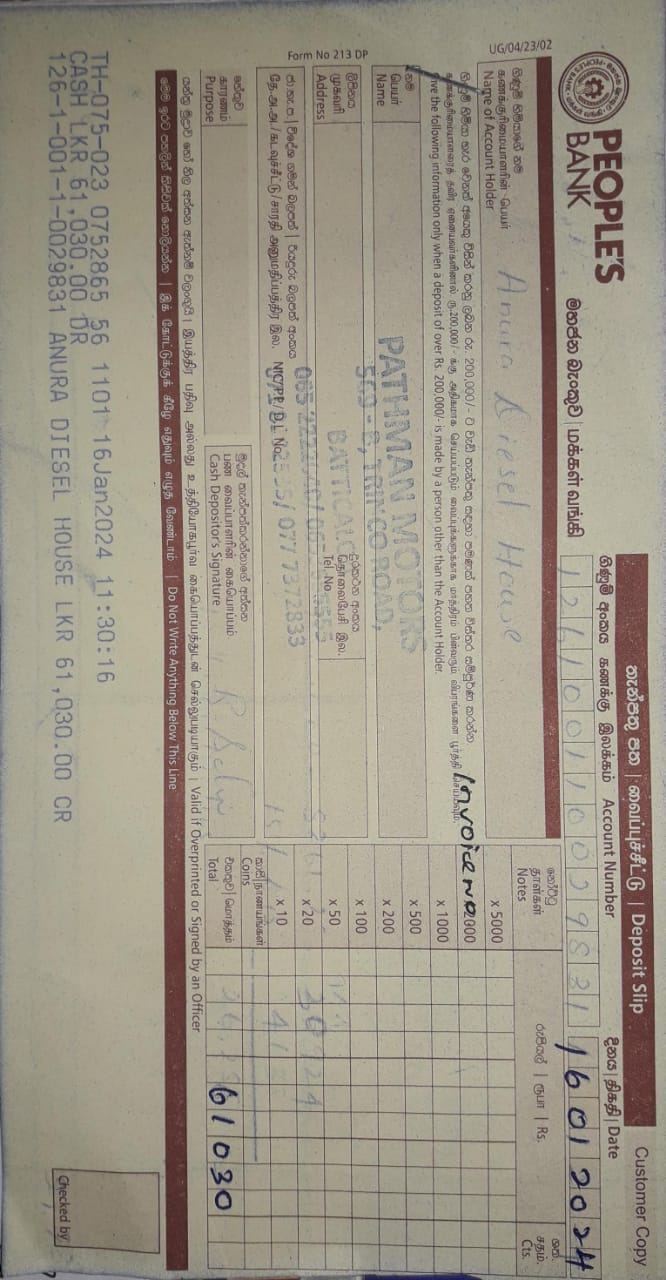 PEOPLE'S
BANK
මහජන බැංකුව | மக்கள் வங்கி
තැන්පතු පත | வைப்புச்சீட்டு | Deposit Slip
Customer Copy
ගිණුම් අංකය கணக்கு இலக்கம் Account Number
දිනය | திகதி | Date
16012024
UG/04/23/02
ගිණුම් හිමියාගේ නම
கணக்குரிமையாளரின் பெயர்
Name of Account Holder
Anura Diesel House
නෝට්ටු
தாள்கள்
Notes
රුපියල් | ரூபா | Rs.
ශත.
சதம்.
Cts.
x 5000
Give the following information only when a deposit of over Rs. 200,000/- is made by a person other than the Account Holder.
Invoice no
x 1000
නම
பெயர்
Name
PATHMAN MOTORS
569 - B, TRINCO ROAD,
x 500
x 200
ලිපිනය
முகவரி
Address
දුරකථන අංකය
தொலைபேசி இல.
Tel. No.
x 100
x 50
Form No 213 DP
NIC/PP/D.L No.
077 7372833
x 20
x 10
හේතුව
காரணம்
Purpose
මුදල් තැන්පත්කරන්නාගේ අත්සන
பண வைப்பாளரின் கையொப்பம்
Cash Depositor's Signature
කාසි | நாணயங்கள்
Coins
එකතුව | மொத்தம்
Total
61030
Valid if Overprinted or Signed by an Officer
Do Not Write Anything Below This Line
TH-075-023 0752865 56 1101 16Jan2024 11:30:16
CASH LKR 61,030.00 DR
126-1-001-1-0029831 ANURA DIESEL HOUSE LKR 61,030.00 CR
Checked by